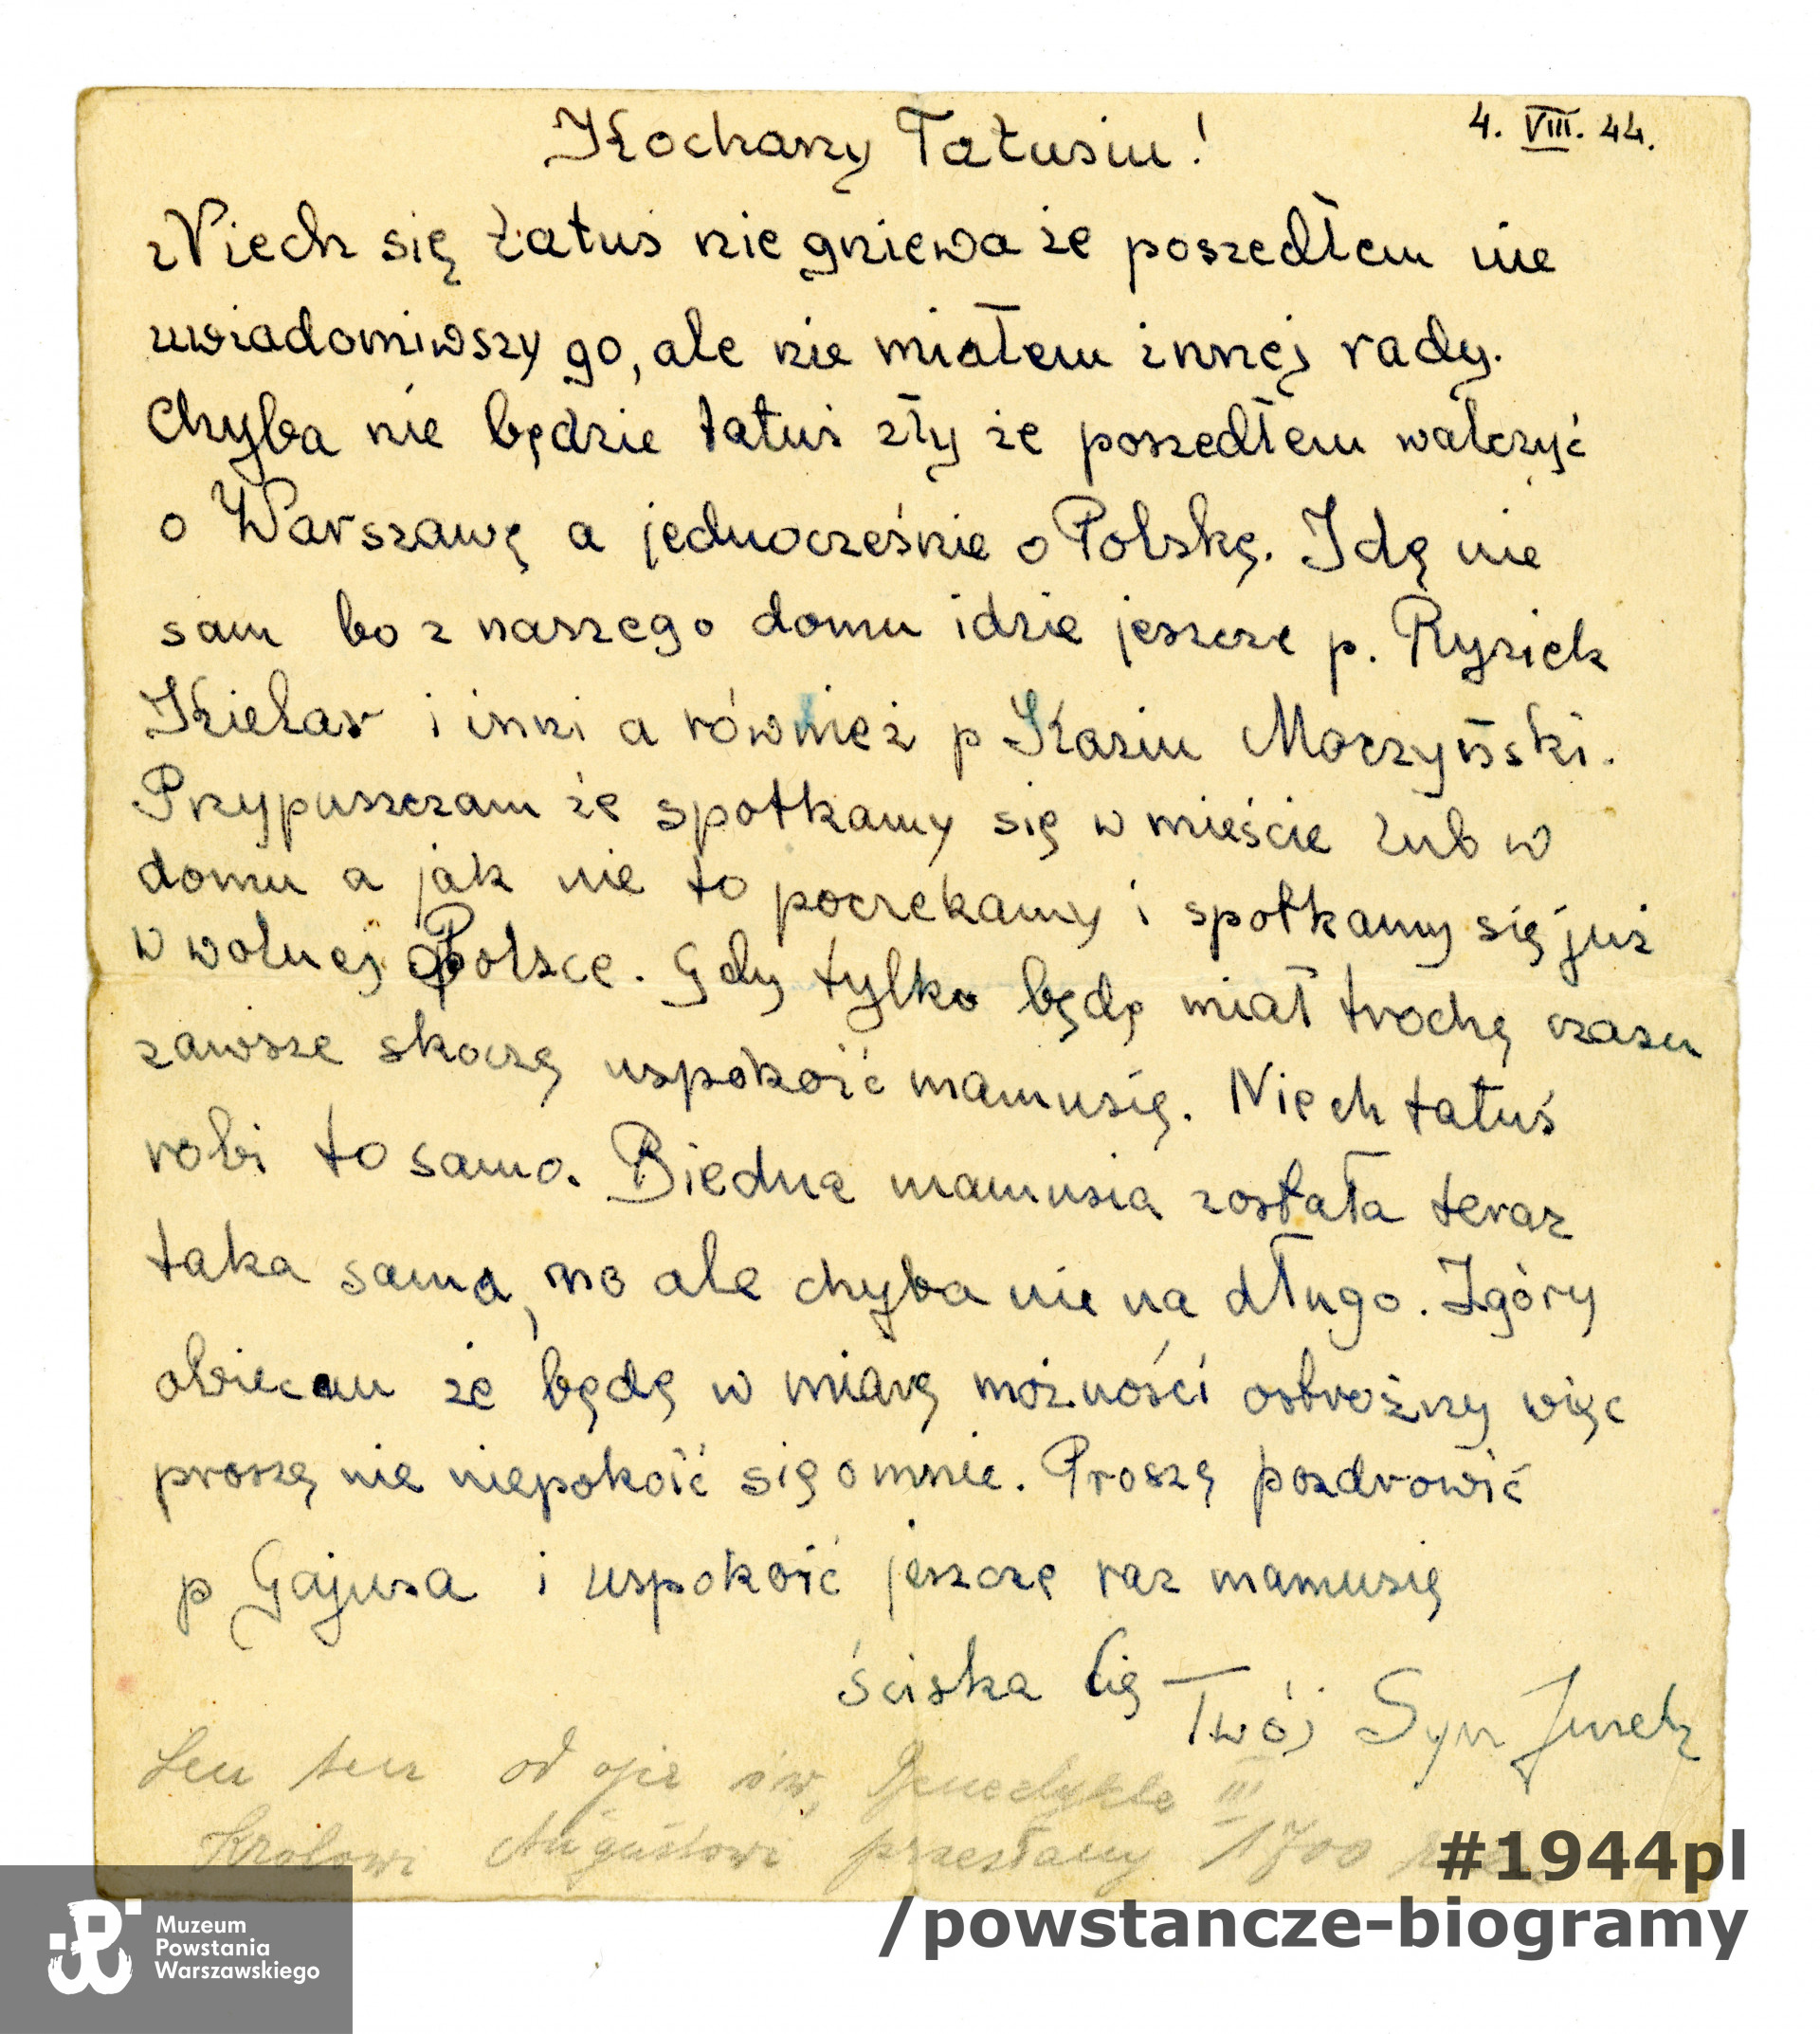 4. VIII. 44.
Kochany Tatusiu!
Niech się tatuś nie gniewa że poszedłem nie
uwiadomiwszy go, ale nie miałem innej rady.
Chyba nie będzie tatuś zły że poszedłem walczyć
o Warszawę a jednocześnie o Polskę. Idę nie
sam bo z naszego domu idzie jeszcze p. Rysiek
Kielar i inni a również p Kaziu Moczyński.
Przypuszczam że spotkamy się w mieście lub w
domu a jak nie to poczekamy i spotkamy się już
w wolnej Polsce. Gdy tylko będę miał trochę czasu
zawsze skoczę uspokoić mamusię. Niech tatuś
robi to samo. Biedna mamusia została teraz
taka sama, no ale chyba nie na długo. Zgóry
obiecau że będę w miarę możności ostrożny więc
proszę nie niepokoić się o mnie. Proszę pozdrowić
p Gajusa i uspokoić jeszcze raz mamusię
ściska Cię Twój Syn Jurek
Len ten od ojca św. Benedykta III
Królowi Augustowi przesłany 1700
#1944pl
/powstancze-biogramy
Muzeum
Powstania
Warszawskiego